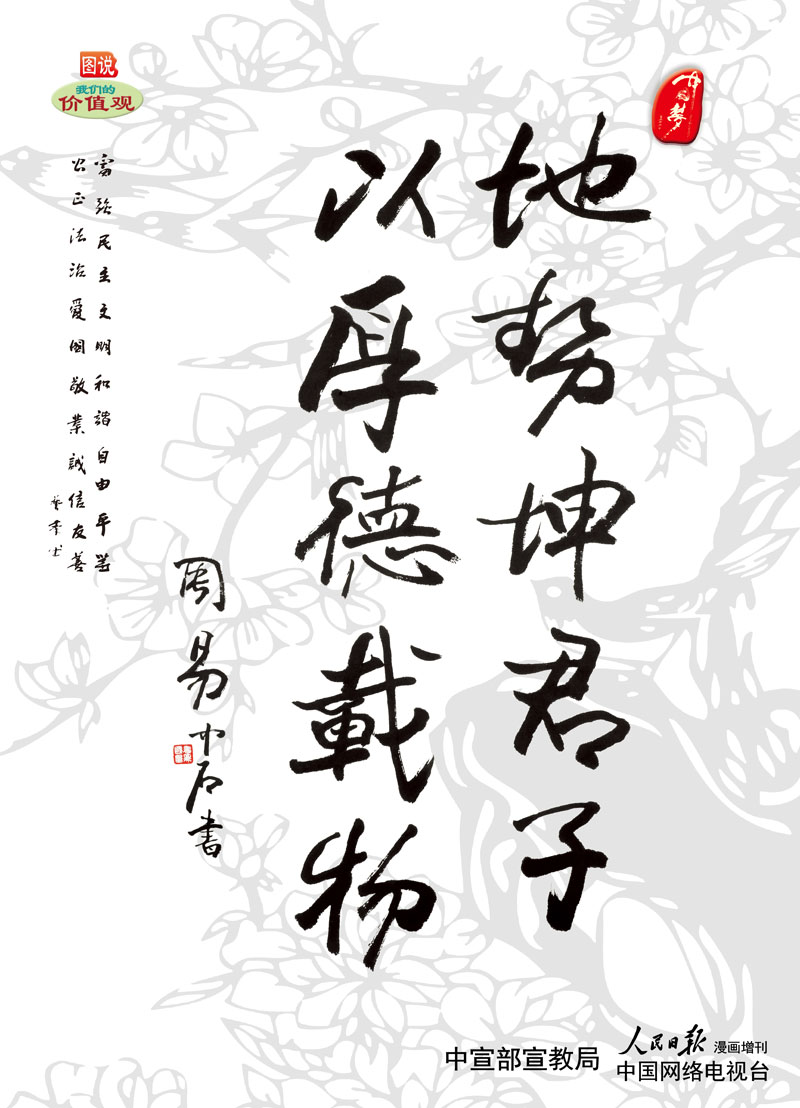 图说
我们的
价值观
中国梦
地势坤君子
以厚德載物
周易 中石书
富强民主文明和谐自由平等
公正法治爱国敬業誠信友善
中宣部宣教局
人民日报 漫画增刊
中国网络电视台